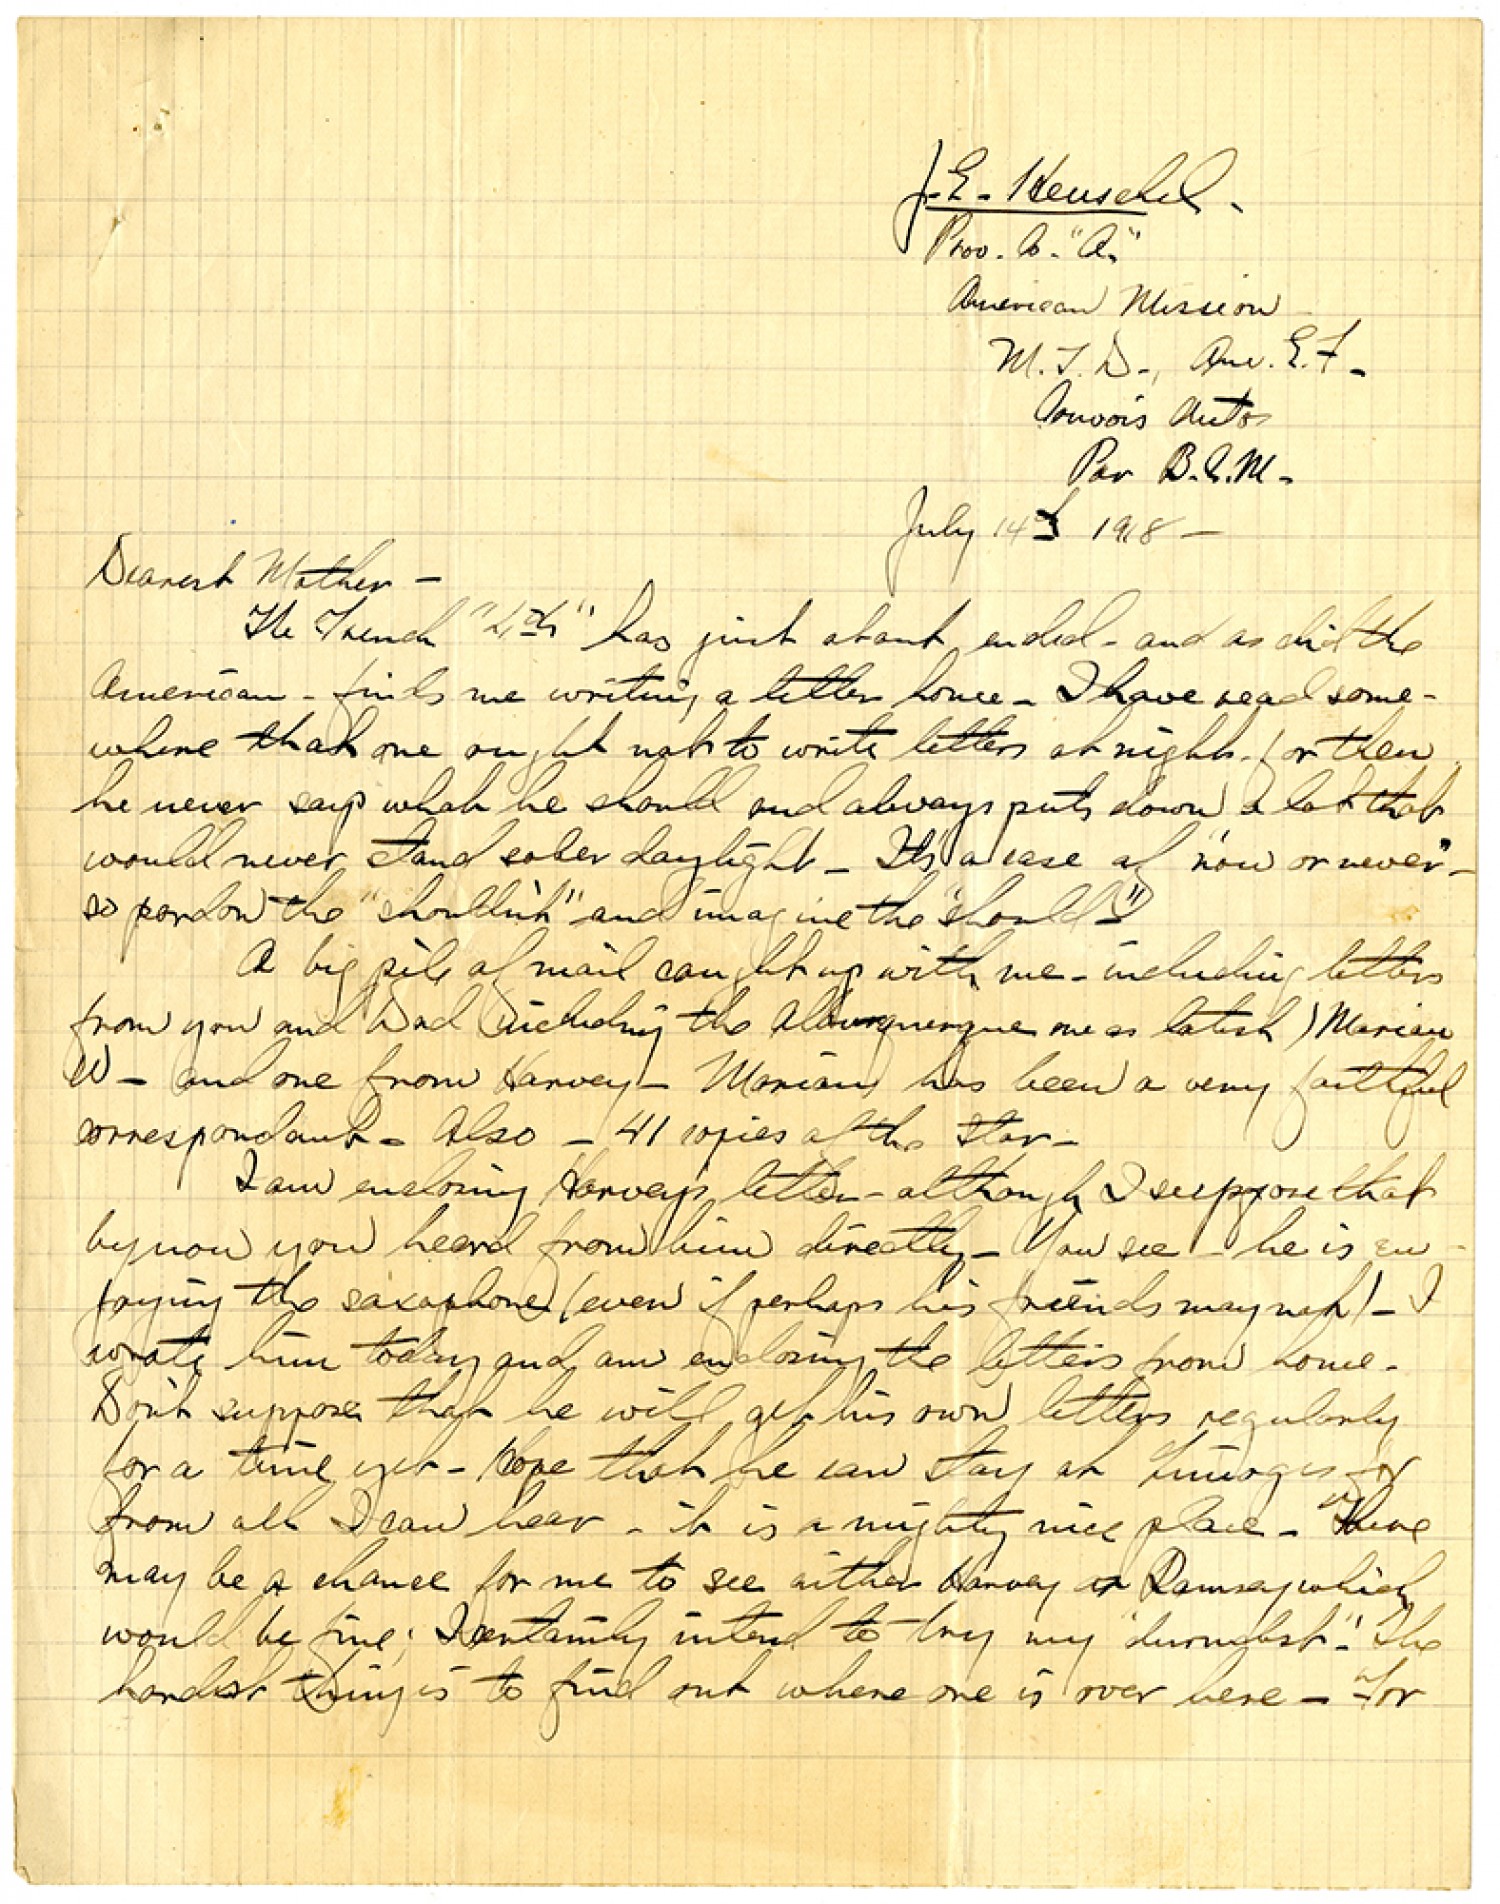 J. E. Henschel.
Prov. Co. "A."
American Mission
M. T. D., Am. E. F.
Convois Autos
Par B. C. M.
July 14th 1918 -
Dearest Mother -
The French "4th" has just about ended - and as did the
American - finds me writing a letter home - I have read some-
where that one ought not to write letters at night - for then
he never says what he should and always puts down a lot that
would never stand sober daylight - It's a case of "now or never" -
so pardon the "shouldn't" and imagine the "should"
A big pile of mail caught up with me - including letters
from you and Dad (including the Albuquerque one as latest) Marian
W - and one from Harvey - Marian has been a very faithful
correspondant - Also - 41 copies of the Star -
I am enclosing Harveys letter - although I suppose that
by now you heard from him directly - You see - he is en-
joying the saxophone (even if perhaps his friends may not) - I
wrote him today and am enclosing the letters from home -
Don't suppose that he will get his own letters regularly
for a time yet - Hope that he can stay at Limoges for
from all I can hear - it is a mighty nice place - There
may be a chance for me to see either Harvey or Ramsey which
would be fine; I certainly intend to try my "durndest" - The
hardest thing is to find out where one is over here - For